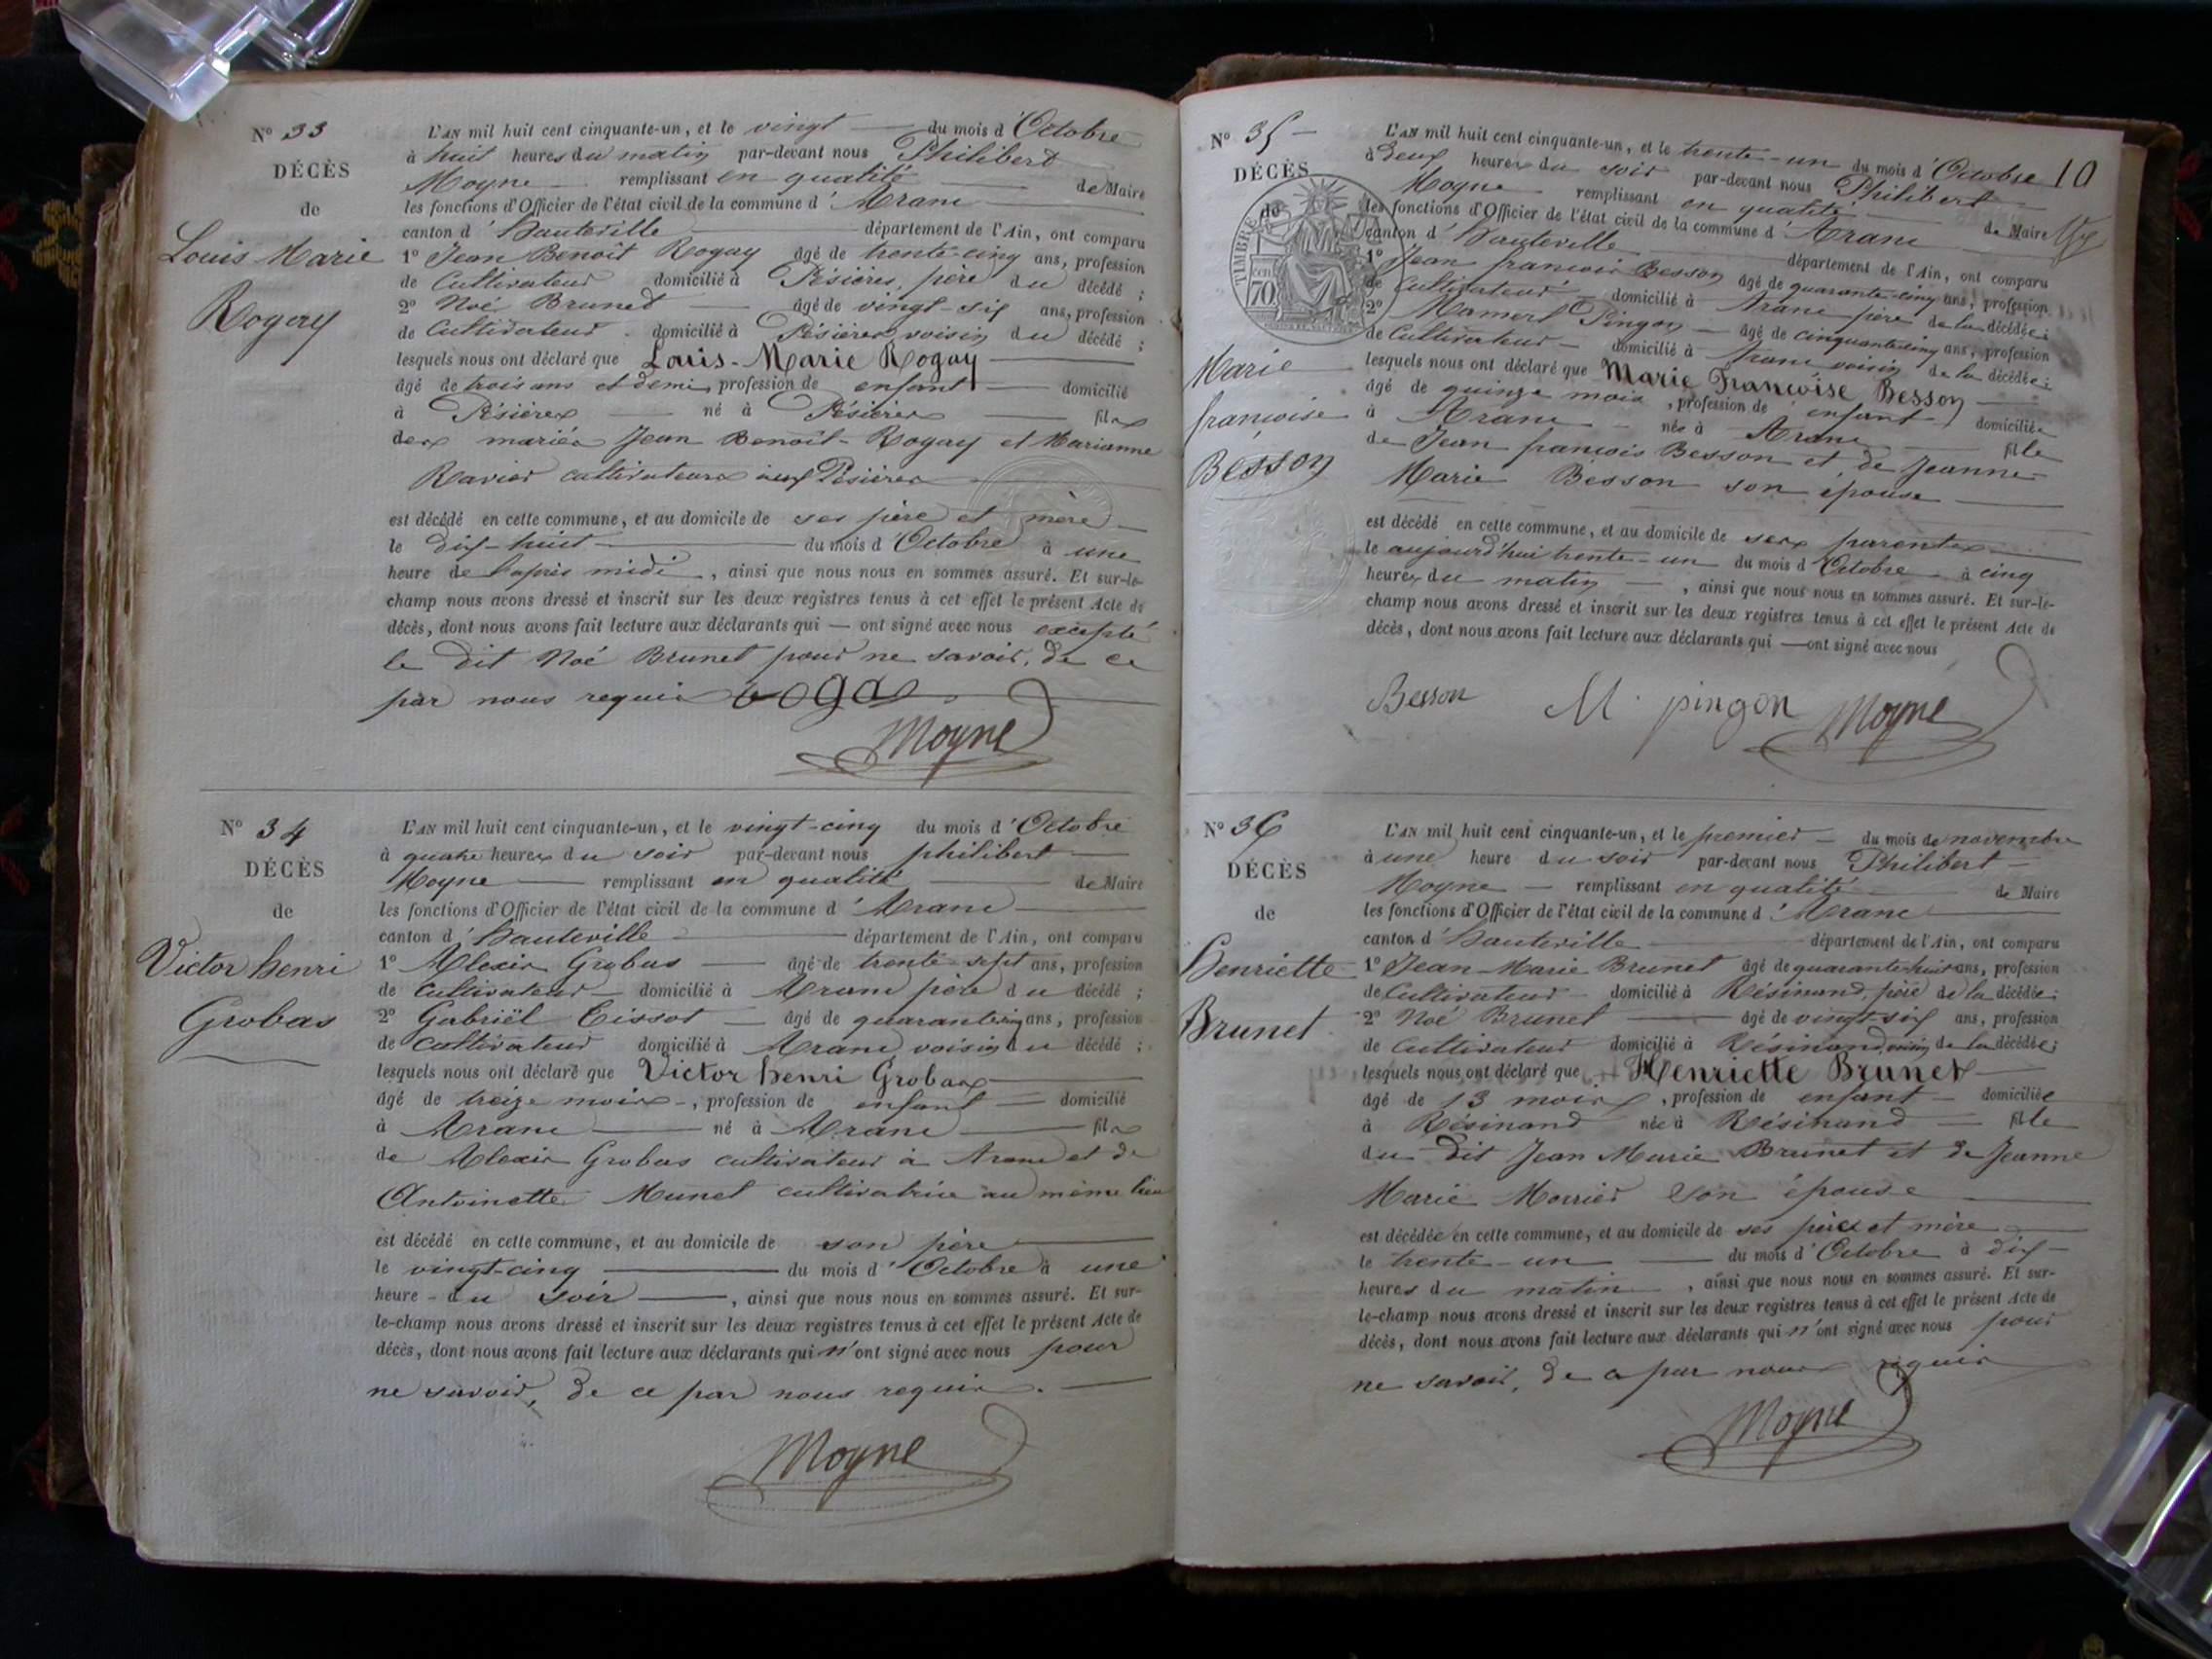 N° 33
DÉCÈS
de
Louis Marie
Rogay
L'AN mil huit cent cinquante-un, et le vingt du mois d'Octobre
à huit heures du matin par-devant nous Philibert
Moyne remplissant en qualité de Maire
les fonctions d'Officier de l'état civil de la commune d'Aranc
canton d'hauteville département de l'Ain, ont comparu
1° Jean Benoît Rogay âgé de trente-cinq ans, profession
de Cultivateur domicilié à Pésières, père du décédé ;
2° Noé Brunet âgé de vingt-six ans, profession
de Cultivateur domicilié à Pésières voisin du décédé ;
lesquels nous ont déclaré que Louis-Marie Rogay
âgé de trois ans et demi, profession de enfant domicilié
à Pésières né à Pésières fils
des mariés Jean Benoît-Rogay et Marianne
Ravier cultivateurs aux Pésières
est décédé en cette commune, et au domicile de ses père et mère
le dix-huit du mois d'Octobre à une
heure de l'après midi, ainsi que nous nous en sommes assuré. Et sur-le-
champ nous avons dressé et inscrit sur les deux registres tenus à cet effet le présent Acte de
décès, dont nous avons fait lecture aux déclarants qui — ont signé avec nous excepté
le dit Noé Brunet pour ne savoir, de ce
par nous requis
Moyne
N° 34
DÉCÈS
de
Victor henri
Grobas
L'AN mil huit cent cinquante-un, et le vingt-cinq du mois d'Octobre
à quatre heures du soir par-devant nous philibert
Moyne remplissant en qualité de Maire
les fonctions d'Officier de l'état civil de la commune d'Aranc
canton d'hauteville département de l'Ain, ont comparu
1° Alexis Grobas âgé de trente-sept ans, profession
de Cultivateur domicilié à Aranc père du décédé ;
2° Gabriël Tissot âgé de quarante cinq ans, profession
de cultivateur domicilié à Aranc, voisin du décédé ;
lesquels nous ont déclaré que Victor henri Grobas
âgé de treize mois, profession de enfant domicilié
à Aranc né à Aranc fils
de Alexis Grobas cultivateur à Aranc et de
Antoinette Munet cultivatrice au même lieu
est décédé en cette commune, et au domicile de son père
le vingt-cinq du mois d'Octobre à une
heure du soir, ainsi que nous nous en sommes assuré. Et sur-
le-champ nous avons dressé et inscrit sur les deux registres tenus à cet effet le présent Acte de
décès, dont nous avons fait lecture aux déclarants qui n'ont signé avec nous pour
ne savoir, de ce par nous requis.
Moyne
10
N° 35
DÉCÈS
de
TIMBRE
70
Marie
françoise
Besson
L'AN mil huit cent cinquante-un, et le trente-un du mois d'Octobre
à deux heures du soir par-devant nous Philibert
Moyne remplissant en qualité de Maire
les fonctions d'Officier de l'état civil de la commune d'Aranc
canton d'hauteville département de l'Ain, ont comparu
1° Jean françois Besson âgé de quarante-cinq ans, profession
de Cultivateur domicilié à Aranc père de la décédée ;
2° Mamert Pingon âgé de cinquante cinq ans, profession
de Cultivateur domicilié à Aranc voisin de la décédée ;
lesquels nous ont déclaré que Marie Françoise Besson
âgé de quinze mois, profession de enfant domiciliée
à Aranc née à Aranc fille
de Jean françois Besson et de Jeanne
Marie Besson son épouse
est décédé en cette commune, et au domicile de ses parents
le aujourd'hui trente-un du mois d'Octobre à cinq
heures du matin, ainsi que nous nous en sommes assuré. Et sur-le-
champ nous avons dressé et inscrit sur les deux registres tenus à cet effet le présent Acte de
décès, dont nous avons fait lecture aux déclarants qui — ont signé avec nous
Besson M. pingon Moyne
N° 36
DÉCÈS
de
Henriette
Brunet
L'AN mil huit cent cinquante-un, et le premier du mois de novembre
à une heure du soir par-devant nous Philibert
Moyne remplissant en qualité de Maire
les fonctions d'Officier de l'état civil de la commune d'Aranc
canton d'hauteville département de l'Ain, ont comparu
1° Jean-Marie Brunet âgé de quarante huit ans, profession
de Cultivateur domicilié à Résinand, père de la décédée ;
2° Noé Brunet âgé de vingt-six ans, profession
de Cultivateur domicilié à Résinand, voisin de la décédée ;
lesquels nous ont déclaré que Henriette Brunet
âgé de 13 mois, profession de enfant domiciliée
à Résinand née à Résinand fille
du dit Jean Marie Brunet et de Jeanne
Marie son épouse
est décédée en cette commune, et au domicile de ses père et mère
le trente-un du mois d'Octobre à dix
heures du matin, ainsi que nous nous en sommes assuré. Et sur-
le-champ nous avons dressé et inscrit sur les deux registres tenus à cet effet le présent Acte de
décès, dont nous avons fait lecture aux déclarants qui n'ont signé avec nous pour
ne savoir, de ce par nous requis
Moyne